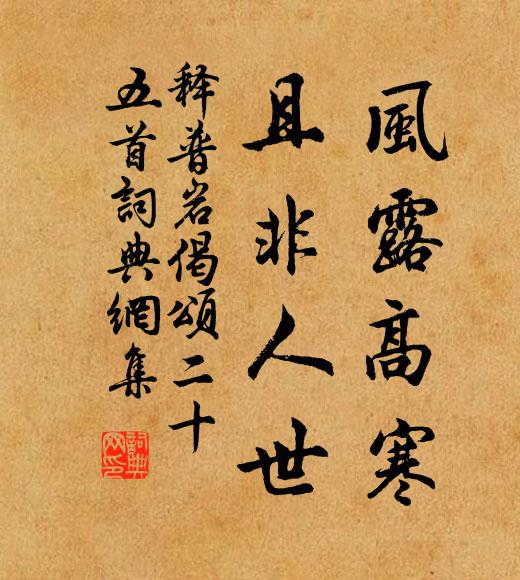 風露高寒
且非人世
释普岩偈頌二十
五首詞典網集
詞典网印